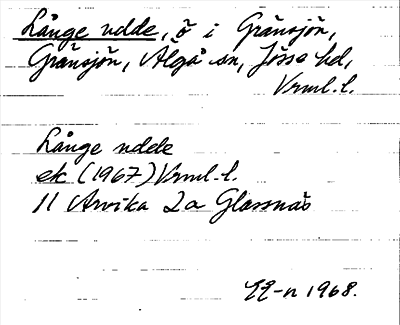 Långe udde, ö i Gränsjön,
Gränsjön, Älgå sn, Jösse hd,
Vrml.l.
Långe udde
ek (1967) Vrml.l.
11 Arvika 2a Glassnäs
EE-n 1968.